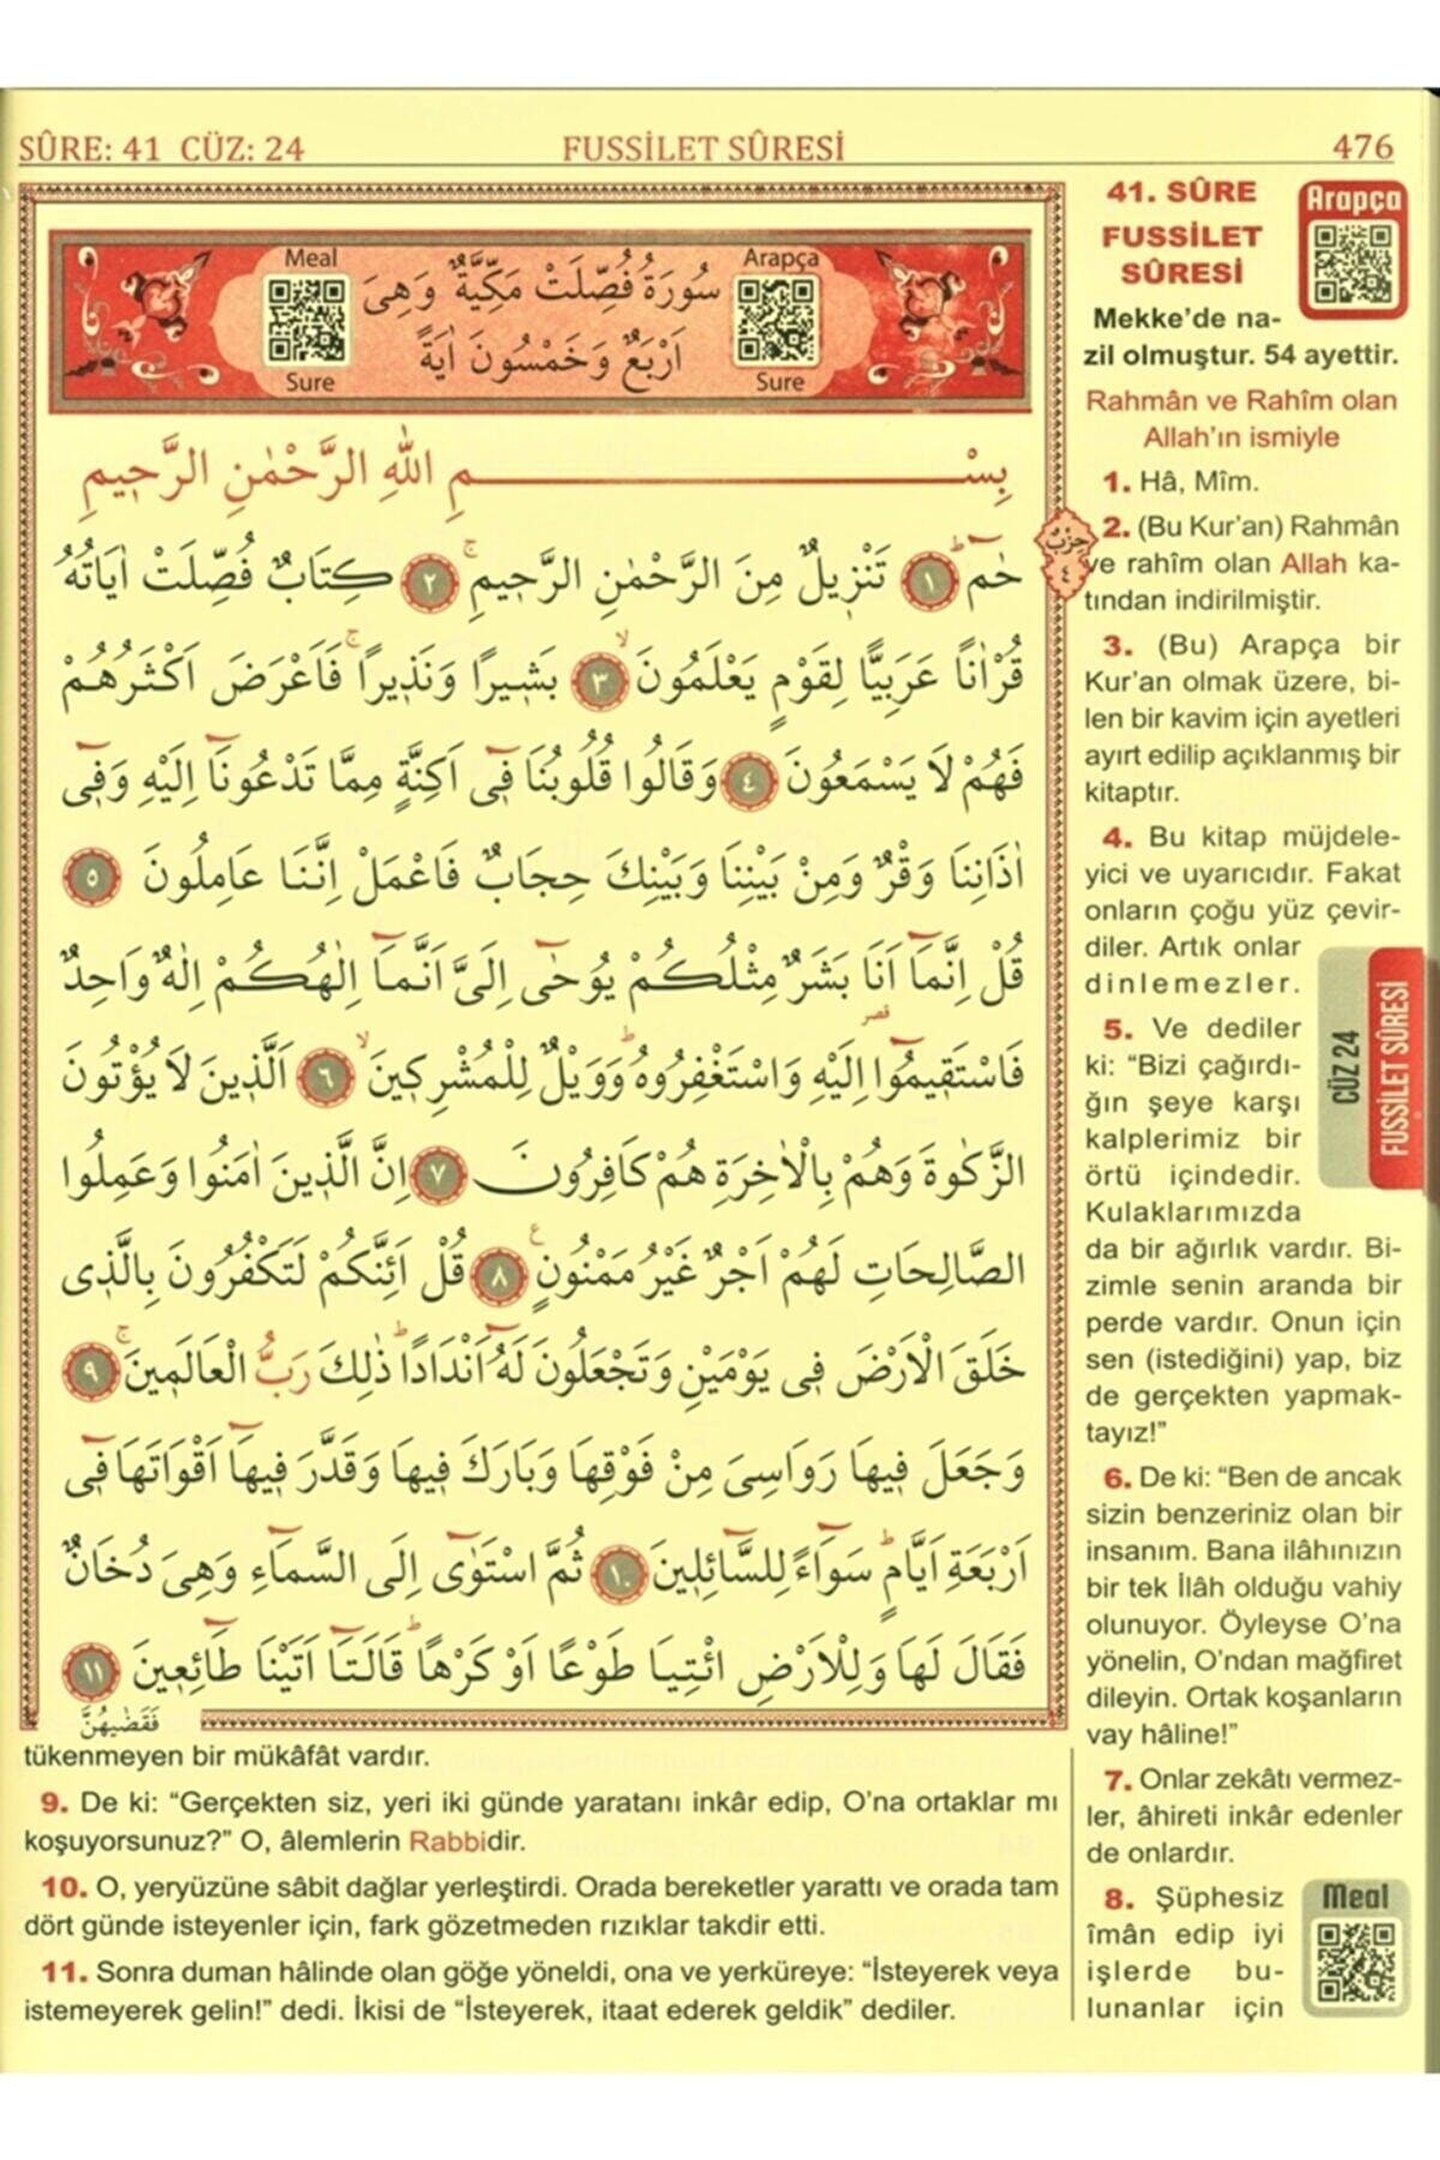 SÛRE: 41 CÜZ: 24
FUSSİLET SÛRESİ
476
Meal
Sure
Arapça
Sure
سُورَةُ فُصِّلَتْ مَكِّيَّةٌ وَهِىَ
اَرْبَعٌ وَخَمْسُونَ اٰيَةً
بِسْمِ اللّٰهِ الرَّحْمٰنِ الرَّحٖيمِ
حٰمٓ ۜ ﴿١﴾ تَنْزٖيلٌ مِنَ الرَّحْمٰنِ الرَّحٖيمِ ۚ ﴿٢﴾ كِتَابٌ فُصِّلَتْ اٰيَاتُهُ
قُرْاٰنًا عَرَبِيًّا لِقَوْمٍ يَعْلَمُونَ ۙ ﴿٣﴾ بَشٖيرًا وَنَذٖيرًا ۚ فَاَعْرَضَ اَكْثَرُهُمْ
فَهُمْ لَا يَسْمَعُونَ ﴿٤﴾ وَقَالُوا قُلُوبُنَا فٖٓى اَكِنَّةٍ مِمَّا تَدْعُونَٓا اِلَيْهِ وَفٖٓى
اٰذَانِنَا وَقْرٌ وَمِنْ بَيْنِنَا وَبَيْنِكَ حِجَابٌ فَاعْمَلْ اِنَّنَا عَامِلُونَ ﴿٥﴾
قُلْ اِنَّمَٓا اَنَا بَشَرٌ مِثْلُكُمْ يُوحٰٓى اِلَىَّ اَنَّمَٓا اِلٰهُكُمْ اِلٰهٌ وَاحِدٌ
فَاسْتَقٖيمُٓوا اِلَيْهِ وَاسْتَغْفِرُوهُ ۜ وَوَيْلٌ لِلْمُشْرِكٖينَ ۙ ﴿٦﴾ اَلَّذٖينَ لَا يُؤْتُونَ
الزَّكٰوةَ وَهُمْ بِالْاٰخِرَةِ هُمْ كَافِرُونَ ﴿٧﴾ اِنَّ الَّذٖينَ اٰمَنُوا وَعَمِلُوا
الصَّالِحَاتِ لَهُمْ اَجْرٌ غَيْرُ مَمْنُونٍ ﴿٨﴾ قُلْ اَئِنَّكُمْ لَتَكْفُرُونَ بِالَّذٖى
خَلَقَ الْاَرْضَ فٖى يَوْمَيْنِ وَتَجْعَلُونَ لَهُٓ اَنْدَادًا ۜ ذٰلِكَ رَبُّ الْعَالَمٖينَ ۚ ﴿٩﴾
وَجَعَلَ فٖيهَا رَوَاسِىَ مِنْ فَوْقِهَا وَبَارَكَ فٖيهَا وَقَدَّرَ فٖيهَٓا اَقْوَاتَهَا فٖٓى
اَرْبَعَةِ اَيَّامٍ ۜ سَوَٓاءً لِلسَّٓائِلٖينَ ﴿١٠﴾ ثُمَّ اسْتَوٰٓى اِلَى السَّمَٓاءِ وَهِىَ دُخَانٌ
فَقَالَ لَهَا وَلِلْاَرْضِ ائْتِيَا طَوْعًا اَوْ كَرْهًا ۜ قَالَتَٓا اَتَيْنَا طَٓائِعٖينَ ﴿١١﴾
فَقَضٰيهُنَّ
حِزْبٌ
٤
41. SÛRE
FUSSİLET
SÛRESİ
Arapça
Mekke'de na-
zil olmuştur. 54 ayettir.
Rahmân ve Rahîm olan
Allah'ın ismiyle
1. Hâ, Mîm.
2. (Bu Kur'an) Rahmân
ve rahîm olan Allah ka-
tından indirilmiştir.
3. (Bu) Arapça bir
Kur'an olmak üzere, bi-
len bir kavim için ayetleri
ayırt edilip açıklanmış bir
kitaptır.
4. Bu kitap müjdele-
yici ve uyarıcıdır. Fakat
onların çoğu yüz çevir-
diler. Artık onlar
dinlemezler.
5. Ve dediler
ki: “Bizi çağırdı-
ğın şeye karşı
kalplerimiz bir
örtü içindedir.
Kulaklarımızda
da bir ağırlık vardır. Bi-
zimle senin aranda bir
perde vardır. Onun için
sen (istediğini) yap, biz
de gerçekten yapmak-
tayız!”
6. De ki: “Ben de ancak
sizin benzeriniz olan bir
insanım. Bana ilâhınızın
bir tek İlâh olduğu vahiy
olunuyor. Öyleyse O'na
yönelin, O'ndan mağfiret
dileyin. Ortak koşanların
vay hâline!”
7. Onlar zekâtı vermez-
ler, âhireti inkâr edenler
de onlardır.
8. Şüphesiz
îmân edip iyi
işlerde bu-
lunanlar için
Meal
CÜZ 24
FUSSİLET SÛRESİ
tükenmeyen bir mükâfât vardır.
9. De ki: “Gerçekten siz, yeri iki günde yaratanı inkâr edip, O'na ortaklar mı
koşuyorsunuz?” O, âlemlerin Rabbidir.
10. O, yeryüzüne sâbit dağlar yerleştirdi. Orada bereketler yarattı ve orada tam
dört günde isteyenler için, fark gözetmeden rızıklar takdir etti.
11. Sonra duman hâlinde olan göğe yöneldi, ona ve yerküreye: “İsteyerek veya
istemeyerek gelin!” dedi. İkisi de “İsteyerek, itaat ederek geldik” dediler.